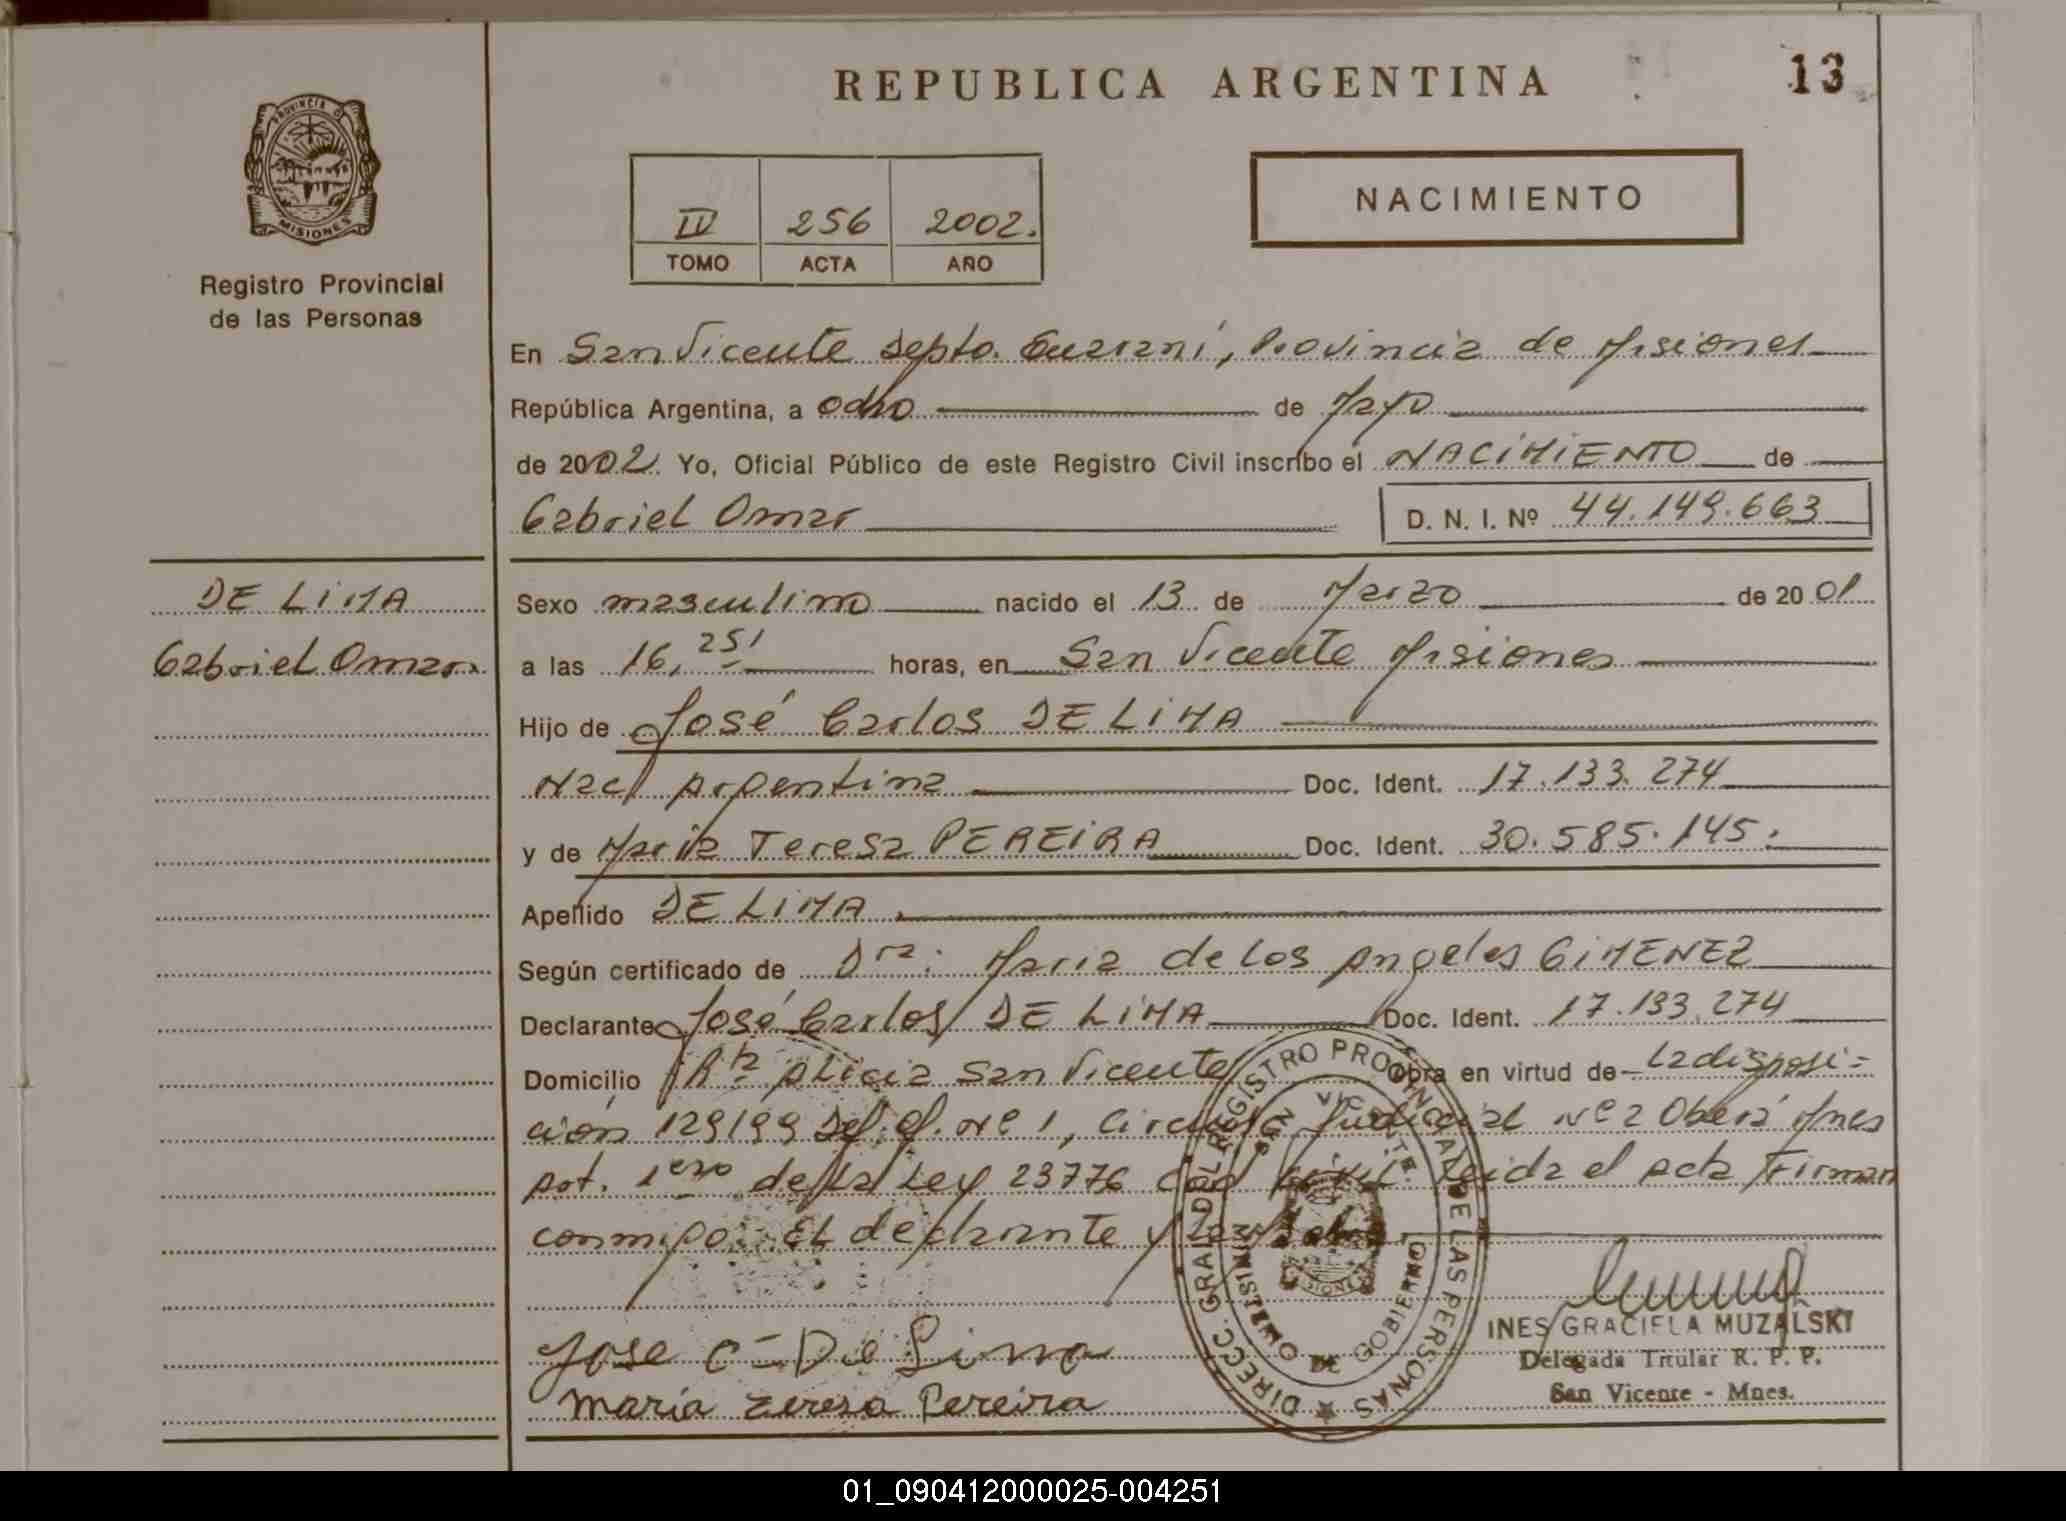 REPUBLICA ARGENTINA
13
PROVINCIA D
MISIONES
Registro Provincial
de las Personas
IV 256 2002.
TOMO ACTA AÑO
NACIMIENTO
En San Vicente Depto. Guaraní, Provincia de Misiones
República Argentina, a ocho de Mayo
de 2002. Yo, Oficial Público de este Registro Civil inscribo el NACIMIENTO de
Gabriel Omar D. N. I. Nº 44.149.663
DE LIMA
Gabriel Omar.
Sexo masculino nacido el 13 de Marzo de 2001
a las 16,25' horas, en San Vicente Misiones
Hijo de José Carlos DE LIMA
Nac. Argentina Doc. Ident. 17.133.274
y de María Teresa PEREIRA Doc. Ident. 30.585.145.
Apellido DE LIMA
Según certificado de Dra: Maria de los Angeles GIMENEZ
Declarante José Carlos DE LIMA Doc. Ident. 17.133.274
Domicilio Rta Alicia San Vicente Obra en virtud de La disposi=
ción 129/99 Def. Of. Nº 1, Circuns. Judicial Nº 2 Oberá Mnes
Art. 1ero de la Ley 23776 Cod Civil. Leida el acta Firman
conmigo: El declarante y la
Jose C= De Lima
maría teresa Pereira
DIRECC. GRAL DEL REGISTRO PROVINCIAL DE LAS PERSONAS
SAN VICENTE
MINISTERIO DE GOBIERNO
MISIONES
INES GRACIELA MUZALSKI
Delegada Titular R. P. P.
San Vicente - Mnes.
01_090412000025-004251